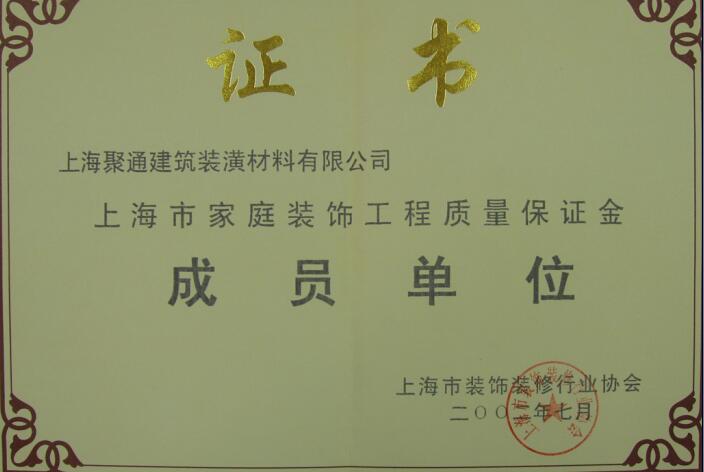 证书
上海聚通建筑装潢材料有限公司
上海市家庭装饰工程质量保证金
成员单位
上海市装饰装修行业协会
二〇〇 年七月